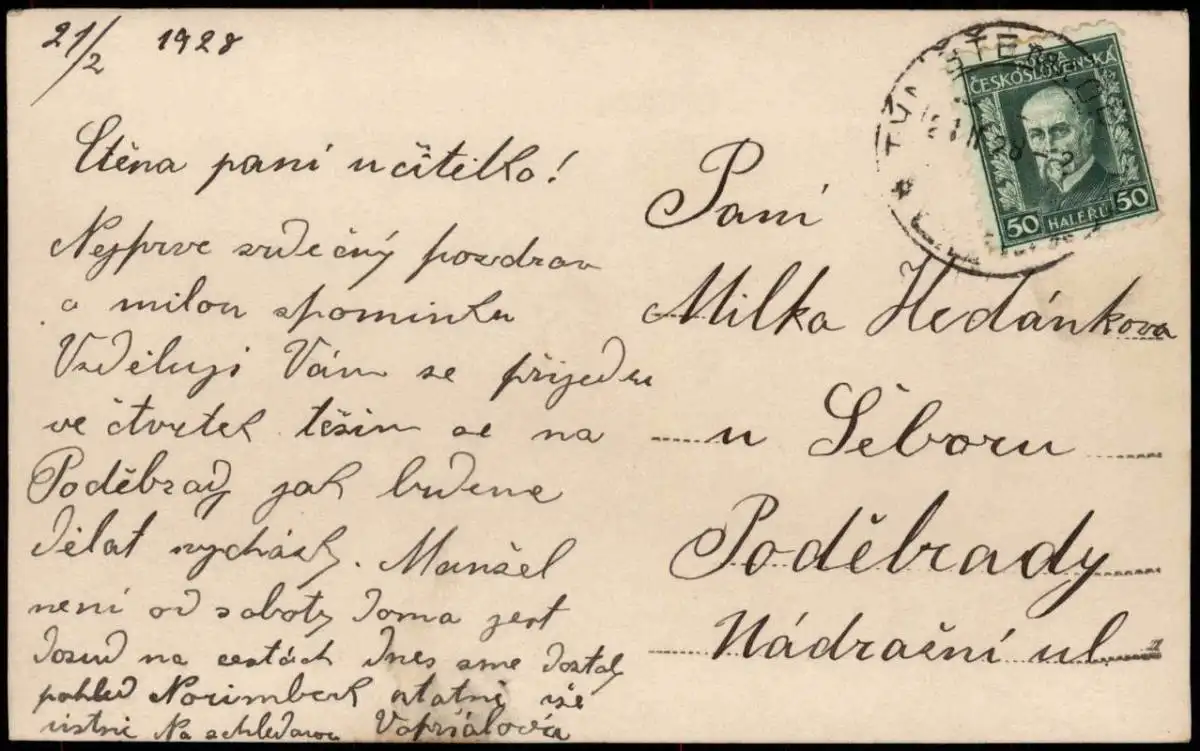 21/2 1928
Ctěna paní učitelko!
Nejprve srdečný pozdrav
a milou spominku
Vzděluji Vám se přijedu
ve čtvrtek těšim se na
Poděbrady jak budeme
dělat vycházky. Manžel
není od soboty doma jest
dosud na cestách dnes sme dostaly
pohled Norimberk ostatní vše
ústně Na schledanou
Paní
Milka Hedánkova
u Šéboru
Poděbrady
Nádražní ul.
ČESKOSLOVENSKÁ
50 HALÉŘŮ 50